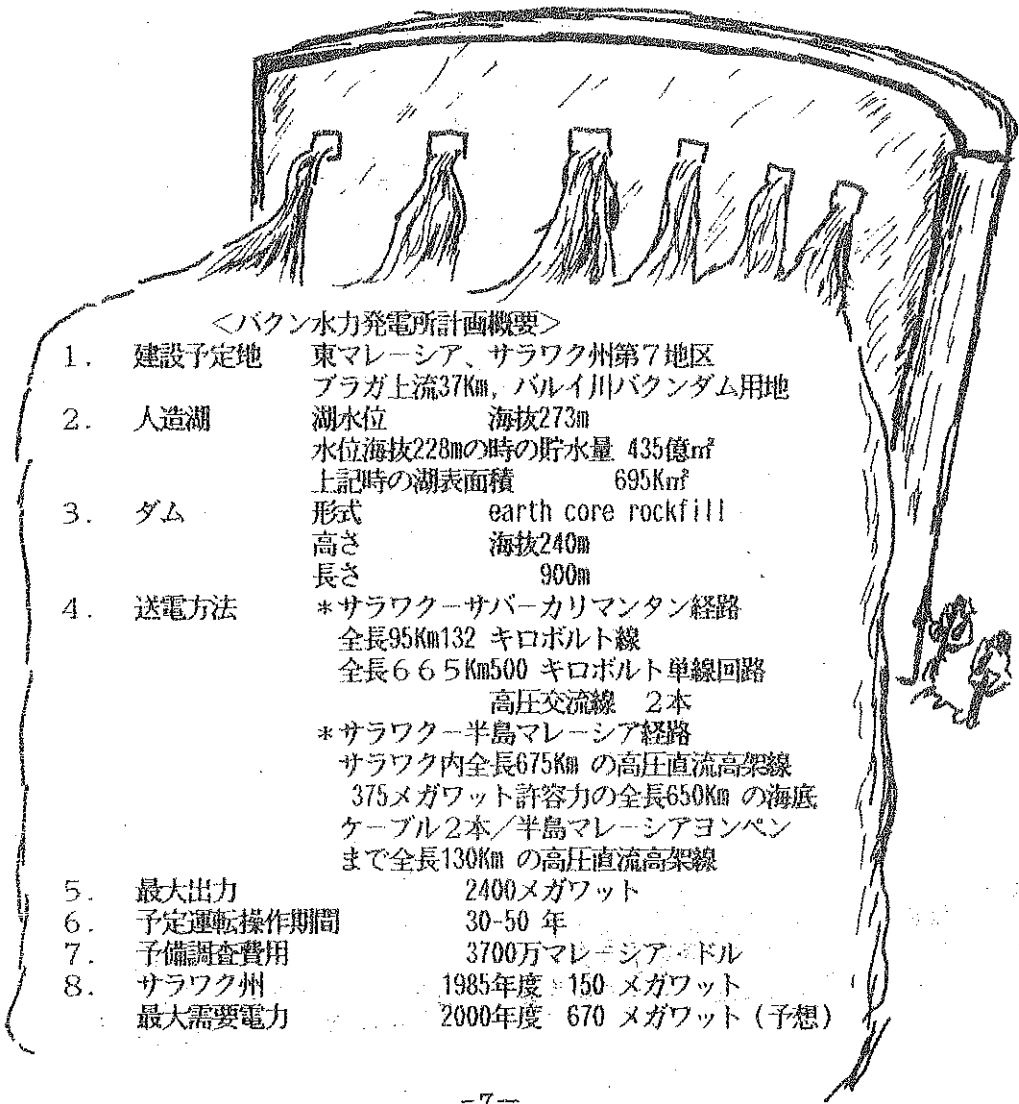 ＜バクン水力発電所計画概要＞
1. 建設予定地 東マレーシア、サラワク州第7地区
ブラガ上流37Km, バルイ川バクンダム用地
2. 人造湖 湖水位 海抜273m
水位海抜228mの時の貯水量 435億㎡
上記時の湖表面積 695K㎡
3. ダム 形式 earth core rockfill
高さ 海抜240m
長さ 900m
4. 送電方法 *サラワクーサバーカリマンタン経路
全長95Km132 キロボルト線
全長665Km500 キロボルト単線回路
高圧交流線 2本
*サラワクー半島マレーシア経路
サラワク内全長675Km の高圧直流高架線
375メガワット許容力の全長650Km の海底
ケーブル2本／半島マレーシアヨンペン
まで全長130Km の高圧直流高架線
5. 最大出力 2400メガワット
6. 予定運転操作期間 30-50 年
7. 予備調査費用 3700万マレーシア・ドル
8. サラワク州 1985年度 150 メガワット
最大需要電力 2000年度 670 メガワット (予想)
-7-